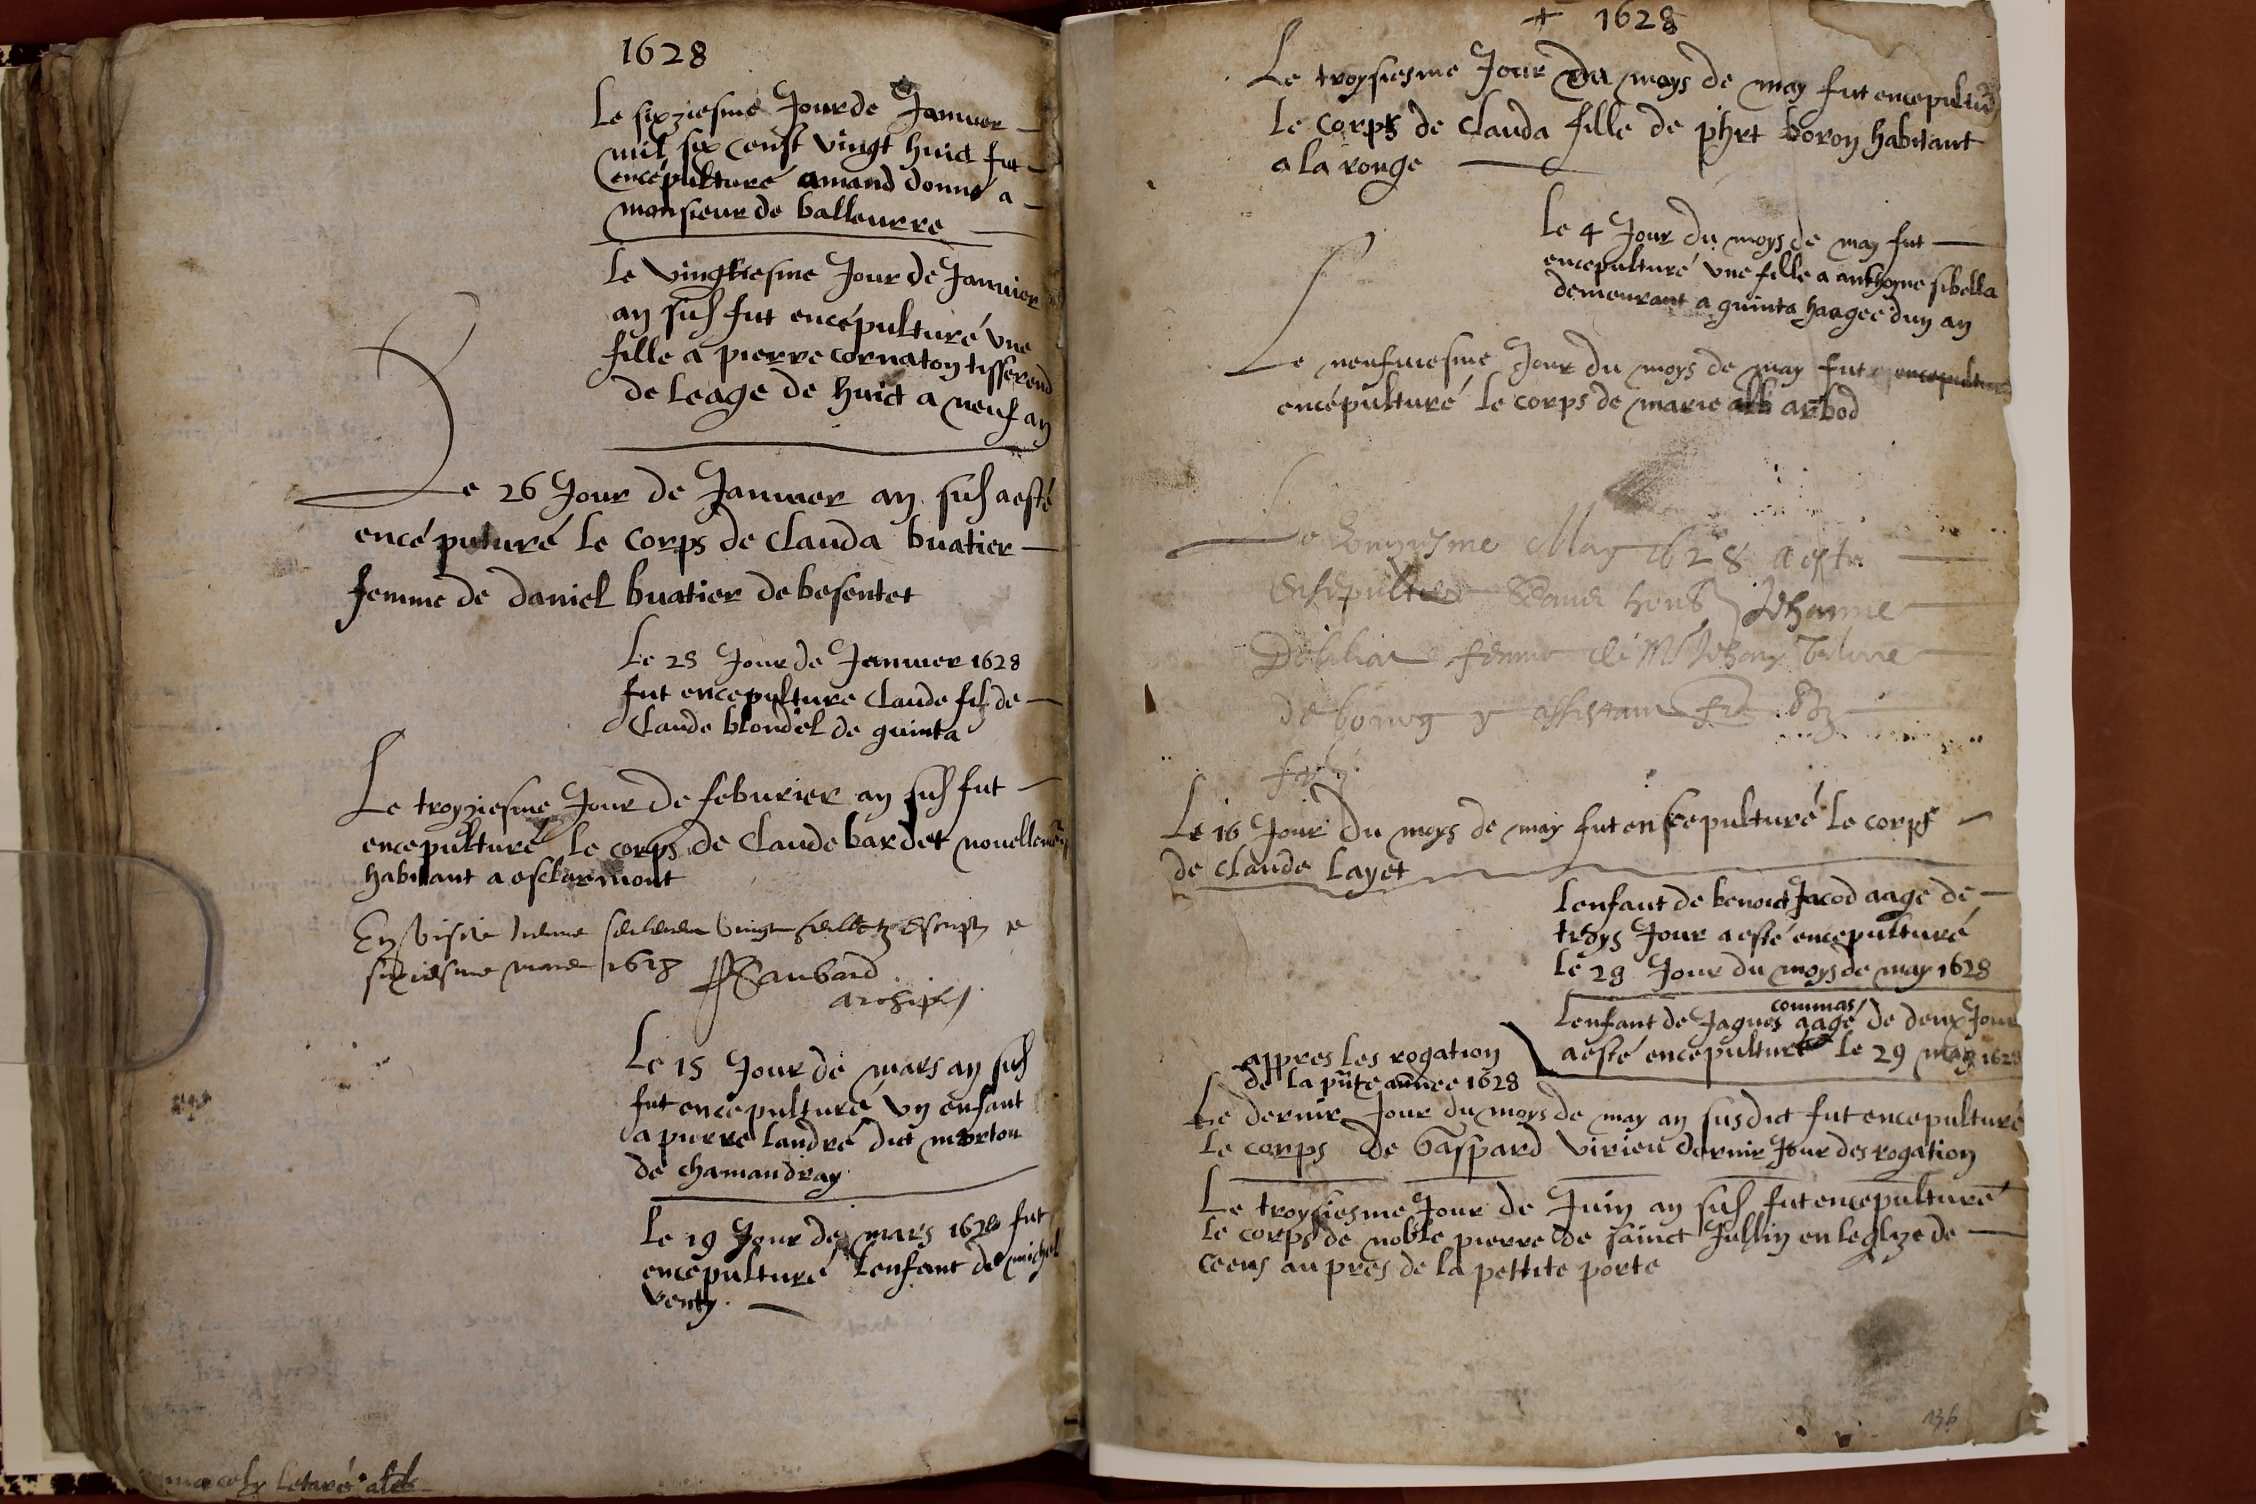 1628
Le sixziesme Jour de Januier
mil six censt vingt huict fut
encépulturé amand donné a
monsieur de balleurre
le vingtiesme Jour de Januier
an sus fut encépulturé vne
fille a pierre cornaton tisserend
de leage de huict a neuf an
Le 26 Jour de Januier an sus a esté
encépulturé le corps de clauda buatier
femme de daniel buatier de besentet
Le 28 Jour de Januier 1628
fut encepulture claude filz de
claude blondel de guinta
Le troyziesme Jour de feburier an sus fut
encepulturé le corps de claude bardet nouellemēt
habitant a esclermont
En visite
1628
archip
Le 15 Jour de mars an sus
fut encepulturé vn enfant
a pierre landré dict morton
de chamandray
Le 19 Jour de mars 1628 fut
encépulturé lenfant de michel
venty
+ 1628
Le troysiesme Jour du moys de may fut encepulturé
le corps de clauda fille de phrt boron habitant
a la ronge
Le 4 Jour du moys de may fut
encepulturé vne fille a anthoyne sibella
demeurant a guinta haagee dun an
Le neufuiesme Jour du moys de may fut encepulturé
encépulturé le corps de marie arbod
May 1628 a esté
Jehanne
femme de Mr Jehan
de bourg
Le 16 Jour du moys de may fut ensepulturé le corps
de claude layet
Lenfant de benoict Jacod aage de
troys Jour a esté encepulturé
le 29 Jour du moys de may 1628
commas
Lenfant de Jaques aagé de deux Jour
a esté encepulturé le 29 may 1628
appres les rogation
de la pnte annee 1628
Le dernir Jour du moys de may an susdict fut encepulturé
le corps de Gaspard virieu dernir Jour des rogation
Le troysiesme Jour de Juin an sus fut encepulturé
le corps de noble pierre de sainct Jullin en leglize de
ceens au pres de la pettite porte
136